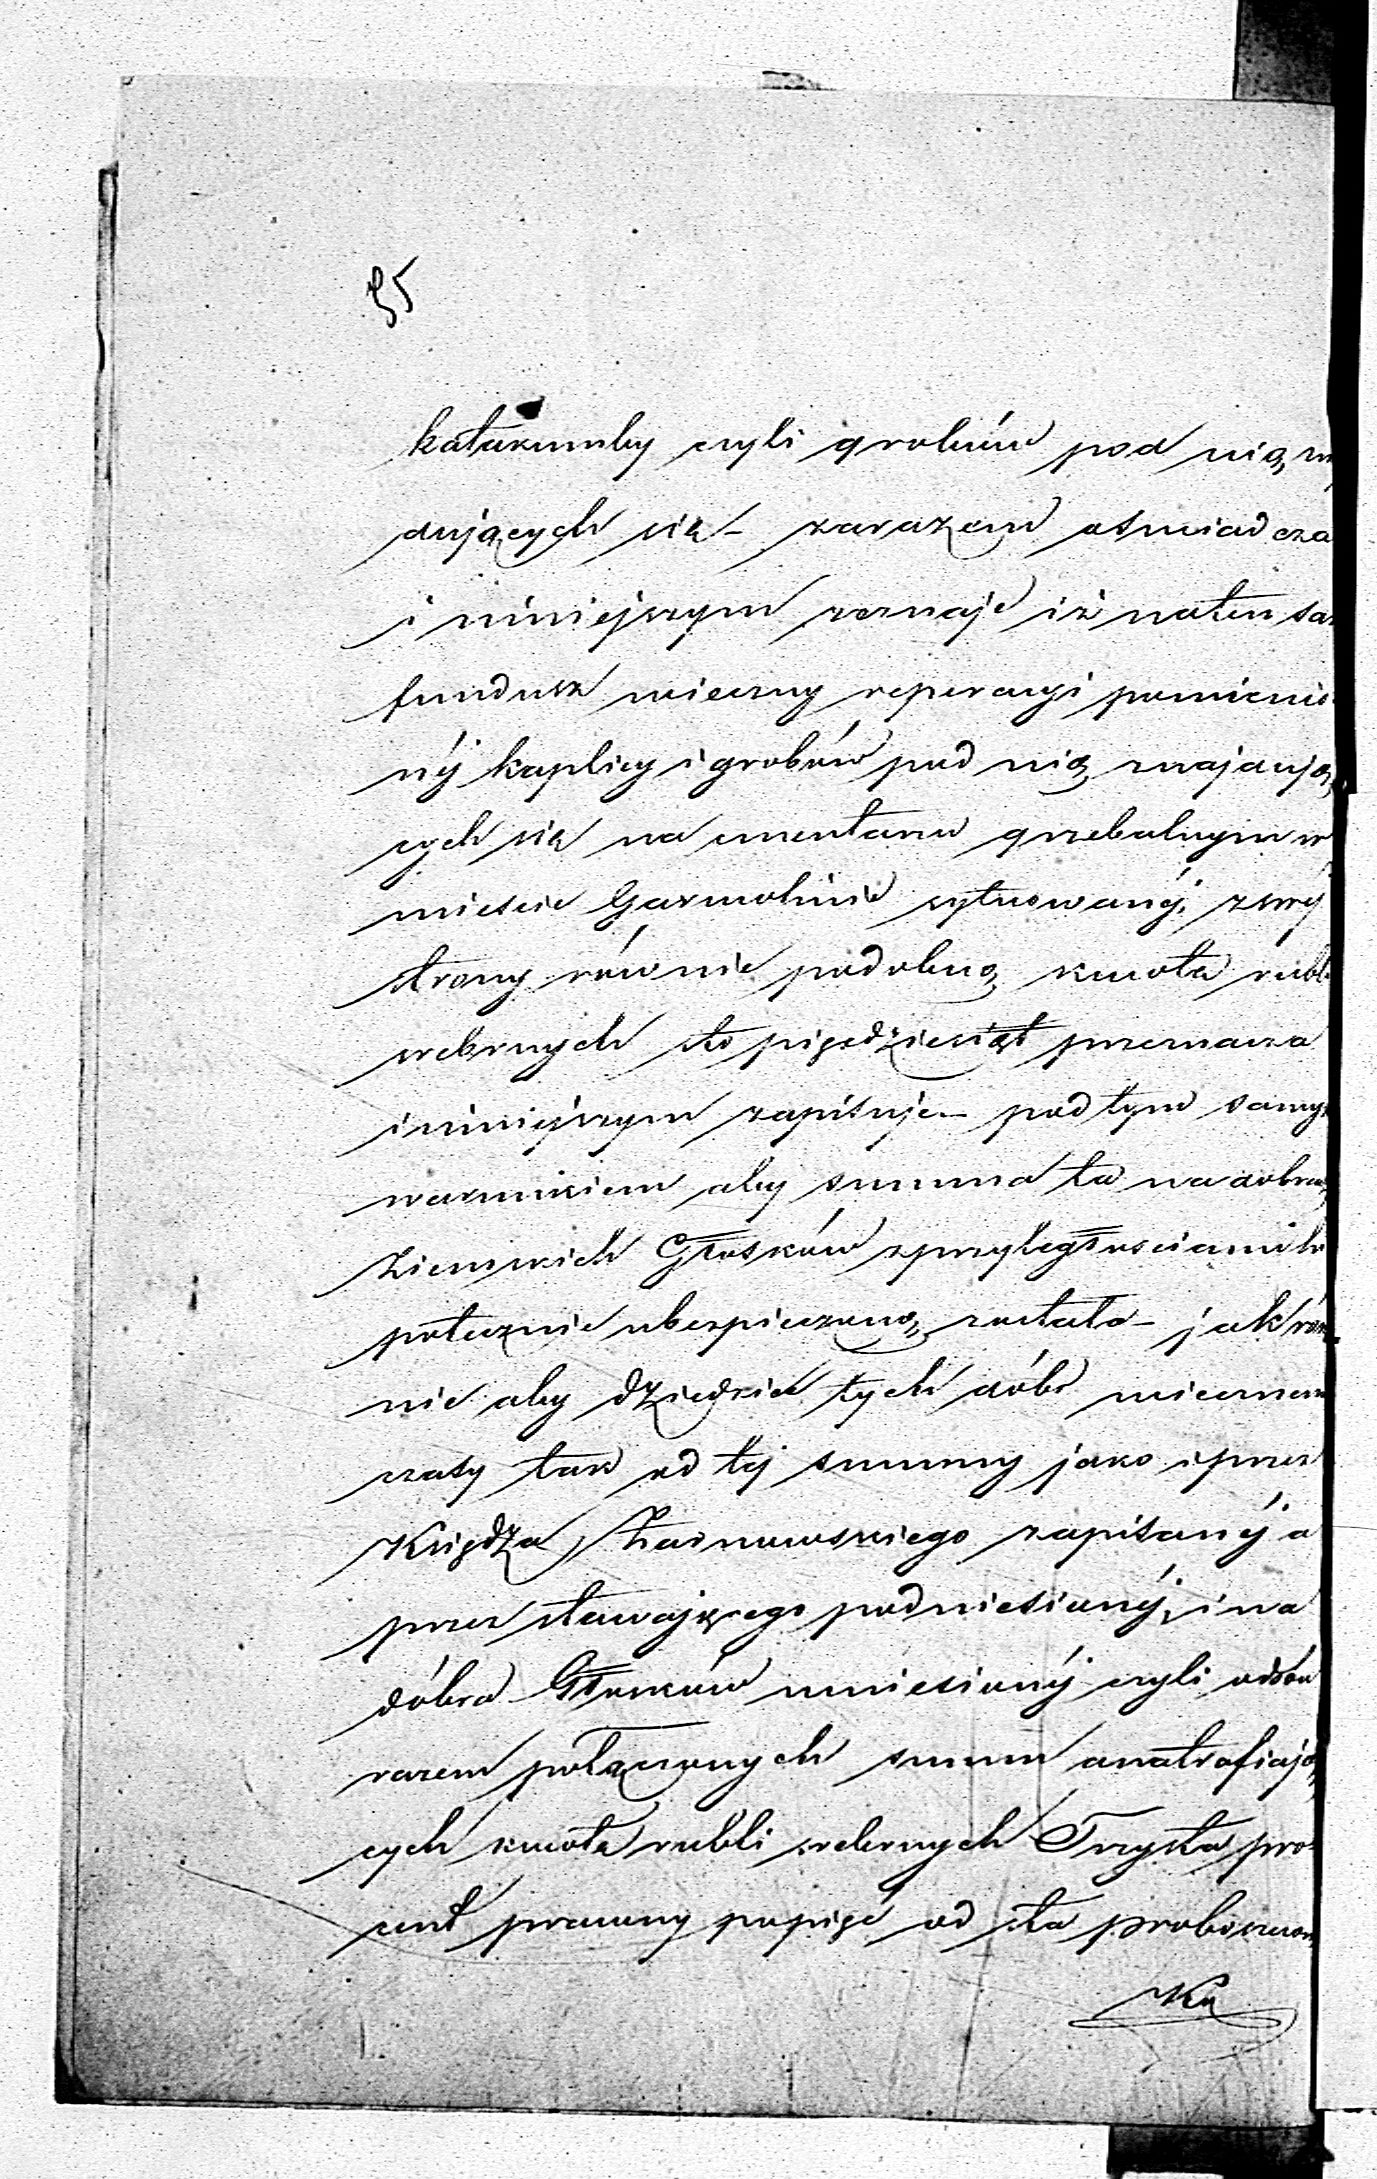 95
katakumby czyli grobów pod nią zn
dujących się – zarazem oświadcza
i niniejszym zeznaje iż na ten sa
fundusz wieczny reperacyi pomienio
néj kaplicy i grobów pod nią znajdują
cych się na cmentarzu grzebalnym w
mieście Garwolinie sytuowanéj, z swéj
strony równie podobną kwotę rubl
srebrnych sto pięćdziesiąt przeznacza
i niniejszym zapisuje – pod tym samy
warunkiem aby summa ta na dobra
Ziemskich Głosków z przyległościami h
potecznie ubezpieczoną została – jak rów
nie aby dziedzic tych dóbr wiecznem
czasy tak od téj summy jako i przez
Księdza zapisanéj a
przez stawającego podniesionéj, i na
dóbra Głosków wniesionéj czyli od obu
razem połączonych summ
cych kwotę rubli srebrnych Trzysta pro
cent prawny po pięć od sta proboszczow